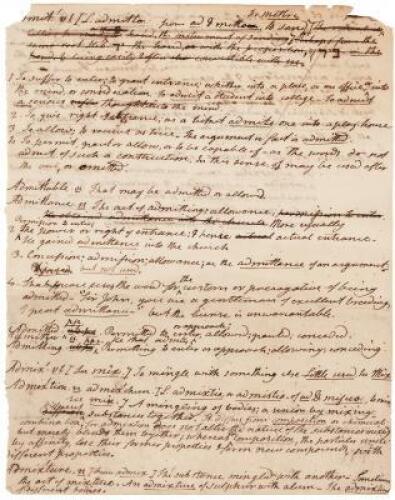 to mettre
Admit, vt [L. admitto from ad & mitto, to send
1. To suffer to enter; to grant entrance; whether into a place, or an office, into
the mind, or consideration; to admit a student into college. To admit
a serious thought into the mind.
2. To give right of entrance; as a ticket admits one into a play house
3. To allow; to receive as true. The argument or fact is admitted.
4. To permit, grant or allow, or to be capable of; as the words do not
admit of such a construction. In this sense of may be used after
the verb, or omitted.
Admittable a That may be admitted or allowed.
Admittance n The act of admitting; allowance; More usually
Permission to enter;
2. The power or right of entrance; & hence actual entrance.
he gained admittance into the church
3. Concession; admission; allowance; as the admittance of an argument
but not used.
4. Shakspeare uses the word for the custom or prerogative of being
admitted. "Sir John, you are a gentleman of excellent breeding,
of great admittance" but the license is unwarrantable.
or approach;
Admitted pp Permitted to enter, allowed; granted; conceded.
Admitter n He that admits
Admitting ppr Permitting to enter or approach; allowing; conceding
Admix vt [See mix.] To mingle with something else Little used. See Mix
Admixtion n admixchun. [L. admixtio, or admistio of ad & misceo, to mix
See mix.] A mingling of bodies; a union by mixing
different substances together. It differs from composition or chimical
combination; for admixtion does not alter the nature of the substances mixed
but merely blends them together; whereas composition, the particles unite
by affinity, lose their former properties & form new compounds, with
different properties.
Admixture, n [from admix.] The substance mingled with another. Sometimes
the act of mixture. An admixture of sulphur with alum. The admixture
of different bodies.